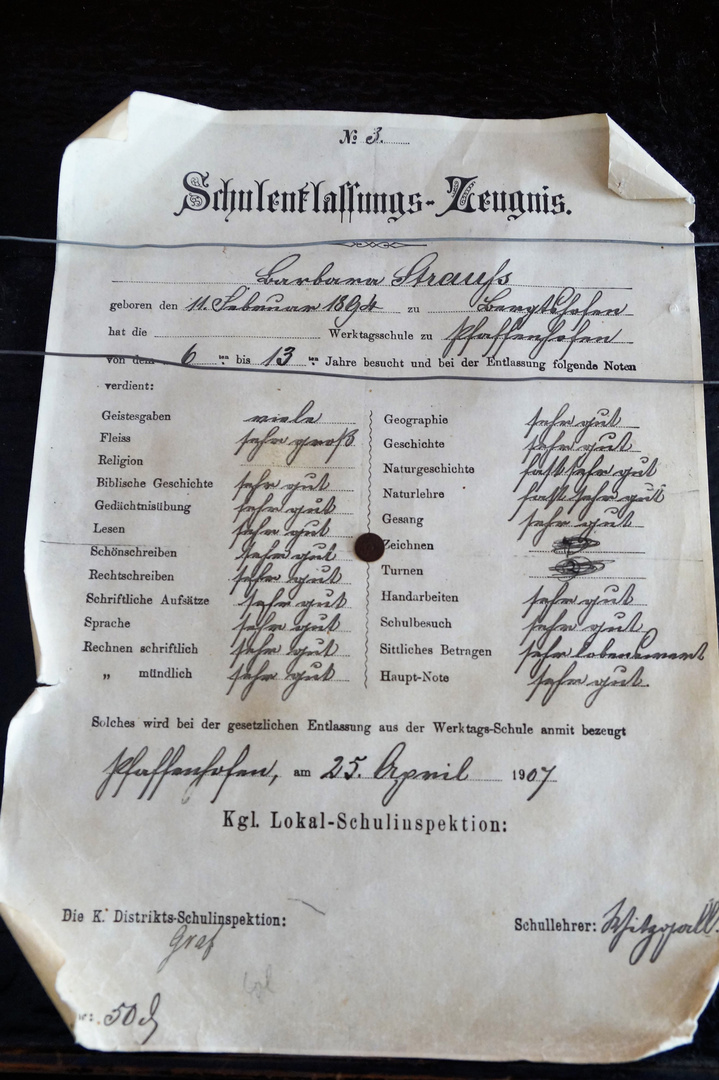 № 3.
Schulentlassungs-Zeugnis.
Barbara Strauß
geboren den 11. Februar 1894 zu Bergtshofen
hat die Werktagsschule zu Pfaffenhofen
von dem 6 ten bis 13 ten Jahre besucht und bei der Entlassung folgende Noten
verdient:
Geistesgaben viele
Fleiss sehr groß
Religion
Biblische Geschichte sehr gut
Gedächtnisübung sehr gut
Lesen sehr gut
Schönschreiben sehr gut
Rechtschreiben sehr gut
Schriftliche Aufsätze sehr gut
Sprache sehr gut
Rechnen schriftlich sehr gut
„ mündlich sehr gut
Geographie sehr gut
Geschichte sehr gut
Naturgeschichte fast sehr gut
Naturlehre fast sehr gut
Gesang sehr gut
Zeichnen
Turnen
Handarbeiten sehr gut
Schulbesuch sehr gut
Sittliches Betragen sehr lobenswert
Haupt-Note sehr gut.
Solches wird bei der gesetzlichen Entlassung aus der Werktags-Schule anmit bezeugt
Pfaffenhofen, am 25. April 1907
Kgl. Lokal-Schulinspektion:
Die K. Distrikts-Schulinspektion:
Graf
Schullehrer:
50 ₰